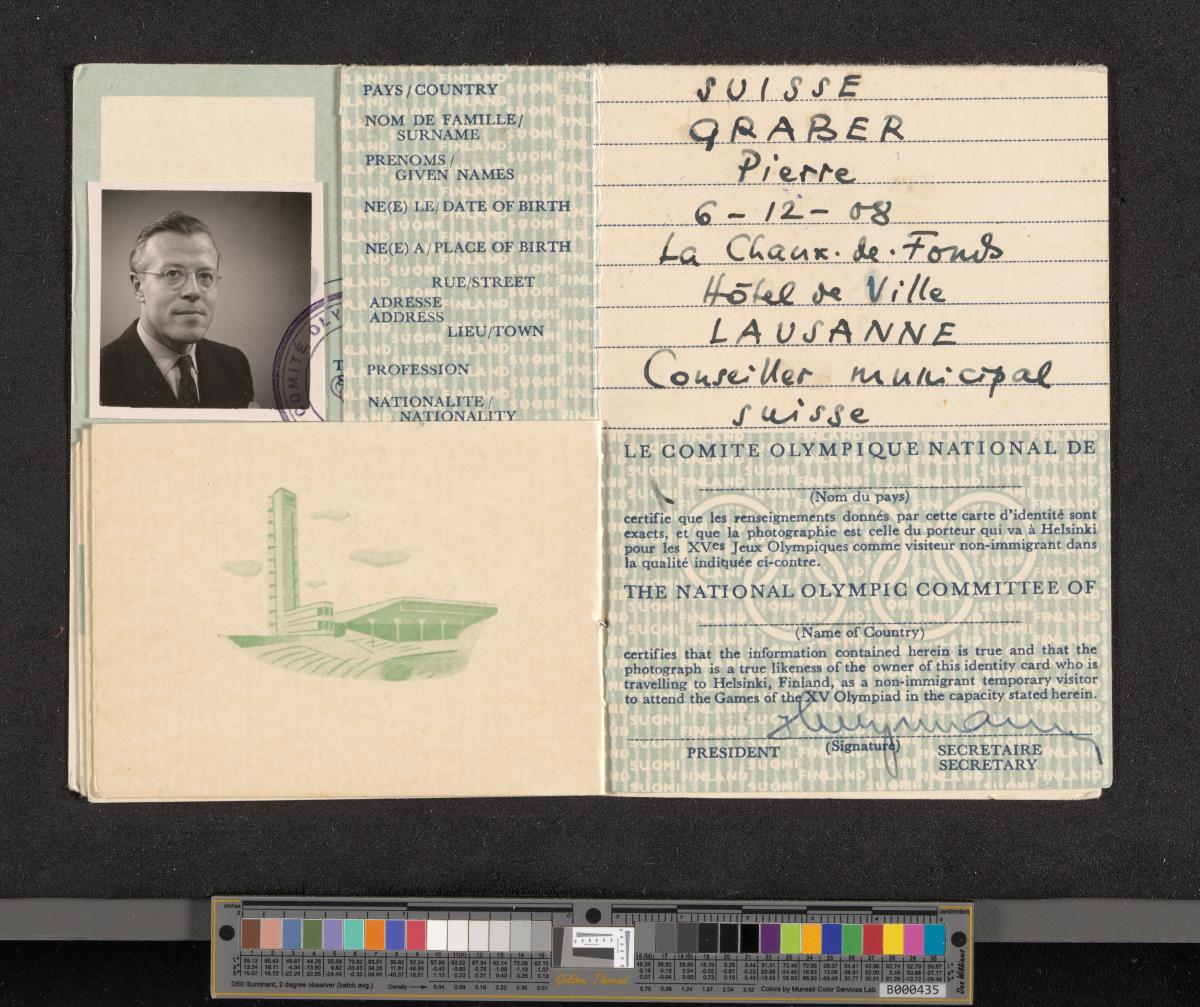 PAYS/COUNTRY
SUISSE
NOM DE FAMILLE/
SURNAME
GRABER
PRENOMS/
GIVEN NAMES
Pierre
NE(E) LE/DATE OF BIRTH
6-12-08
NE(E) A/PLACE OF BIRTH
La Chaux-de-Fonds
RUE/STREET
Hôtel de Ville
ADRESSE
ADDRESS
LIEU/TOWN
LAUSANNE
PROFESSION
Conseiller municipal
NATIONALITE/
NATIONALITY
suisse
COMITÉ OLY
LE COMITE OLYMPIQUE NATIONAL DE
(Nom du pays)
certifie que les renseignements donnés par cette carte d'identité sont
exacts, et que la photographie est celle du porteur qui va à Helsinki
pour les XVes Jeux Olympiques comme visiteur non-immigrant dans
la qualité indiquée ci-contre.
THE NATIONAL OLYMPIC COMMITTEE OF
(Name of Country)
certifies that the information contained herein is true and that the
photograph is a true likeness of the owner of this identity card who is
travelling to Helsinki, Finland, as a non-immigrant temporary visitor
to attend the Games of the XV Olympiad in the capacity stated herein.
PRESIDENT
(Signature)
SECRETAIRE
SECRETARY
FINLAND SUOMI
inches
centimeters
D50 Illuminant, 2 degree observer (batch avg.)
Density
Golden Thread
Colors by Munsell Color Services Lab
B000435